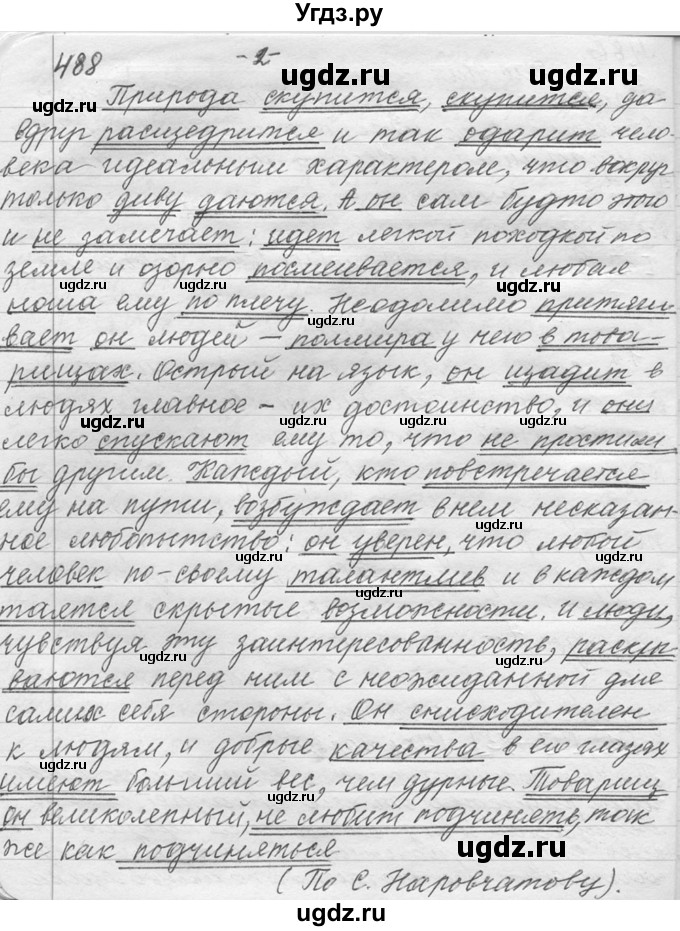 Угдз.ру
488 -2-
Природа скупится, скупится, да
вдруг расщедрится и так одарит чело-
века идеальным характером, что вокруг
только диву даются. А он сам будто этого
и не замечает: идет легкой походкой по
земле и озорно посмеивается, и любая
ноша ему по плечу. Неодолимо притяги-
вает он людей – полмира у него в това-
рищах. Острый на язык, он щадит в
людях главное – их достоинство, и они
легко спускают ему то, что не простили
бы другим. Каждый, кто повстречается
ему на пути, возбуждает в нем несказан-
ное любопытство: он уверен, что любой
человек по-своему талантлив и в каждом
таятся скрытые возможности. И люди,
чувствуя эту заинтересованность, раскры-
ваются перед ним с неожиданной для
самих себя стороны. Он снисходителен
к людям, и добрые качества в его глазах
имеют больший вес, чем дурные. Товарищ
он великолепный, не любит подчинять, так
же как подчиняться
(По С. Наровчатову).
ugdz.ru